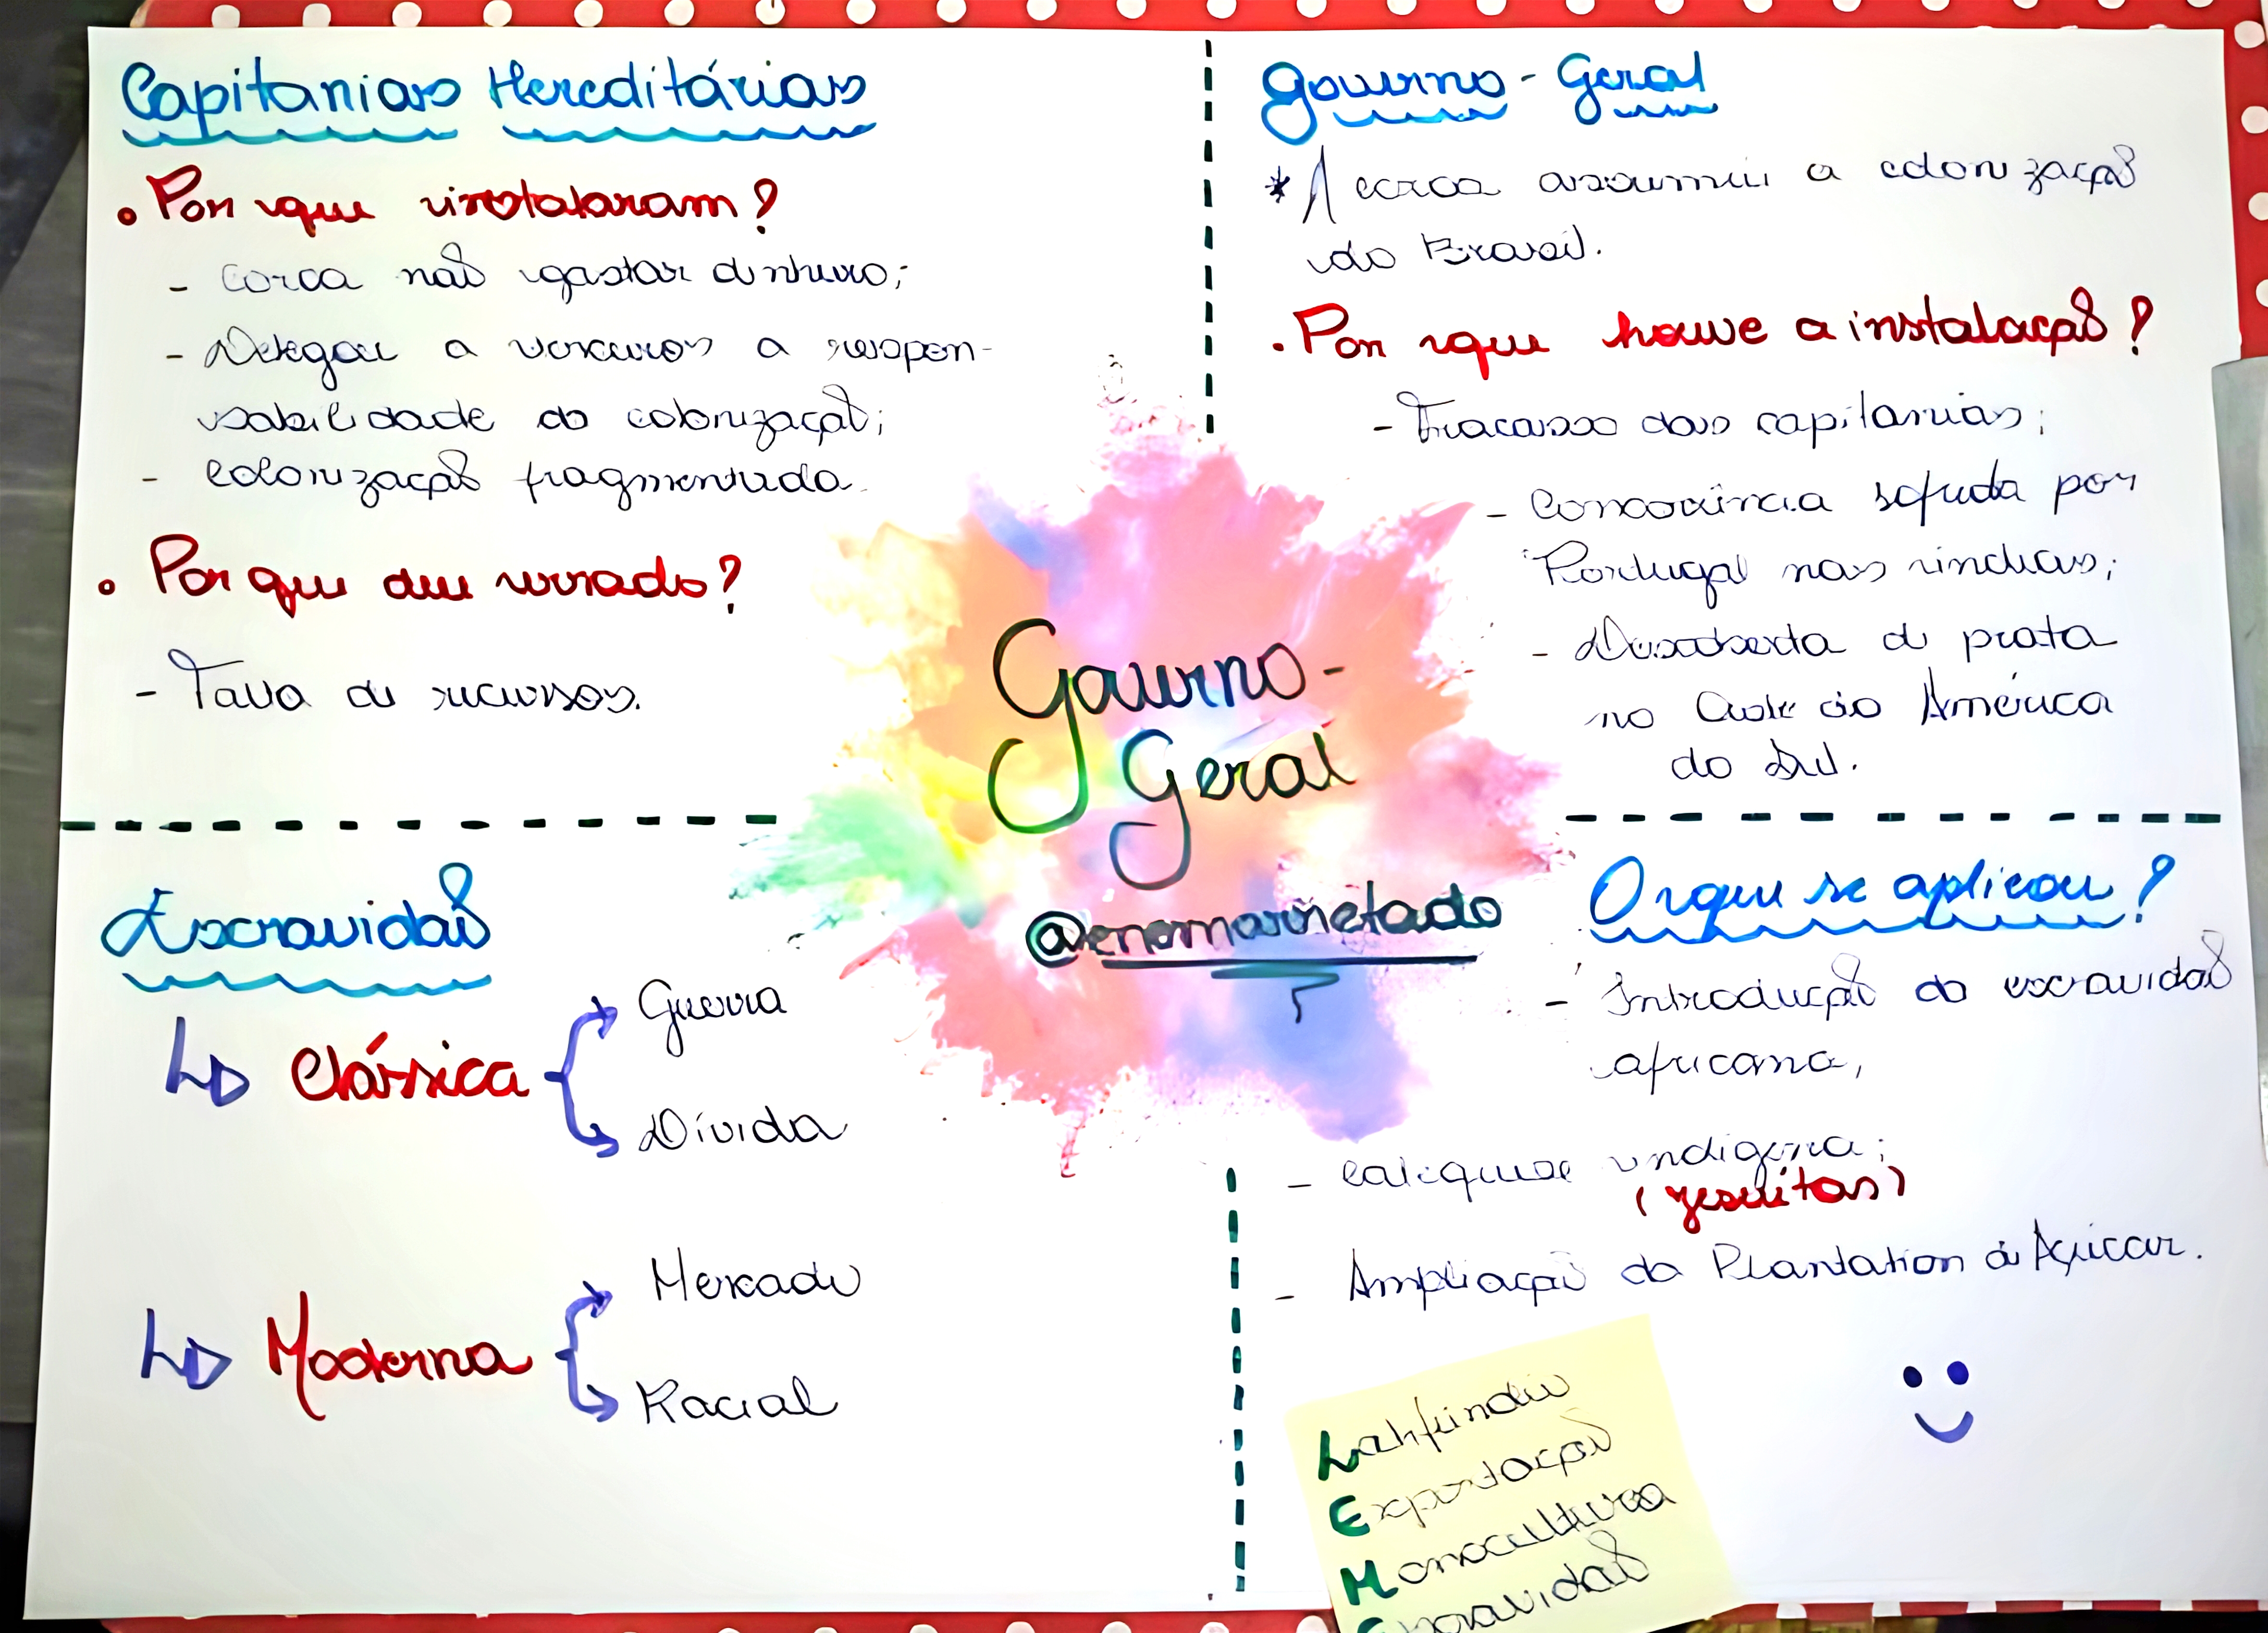 Capitanias Hereditárias
• Por que instalaram?
- Coroa não gastar dinheiro;
- Delegar a terceiros a respon-
sabilidade da colonização;
- Colonização fragmentada.
• Por que deu errado?
- Falta de recursos.
Governo-Geral
* A coroa assumiu a colonização
do Brasil.
• Por que houve a instalação?
- Fracasso das capitanias;
- Concorrência sofrida por
Portugal nas índias;
- Descoberta de prata
no Oeste da América
do Sul.
Governo-
Geral
@enemarretado
Escravidão
Clássica
Guerra
Dívida
Moderna
Mercado
Racial
O que se aplicou?
- Introdução da escravidão
africana;
- Catequese indígena;
(jesuítas)
- Ampliação da Plantation de Açúcar.
Latifúndio
Exportação
Monocultura
Escravidão